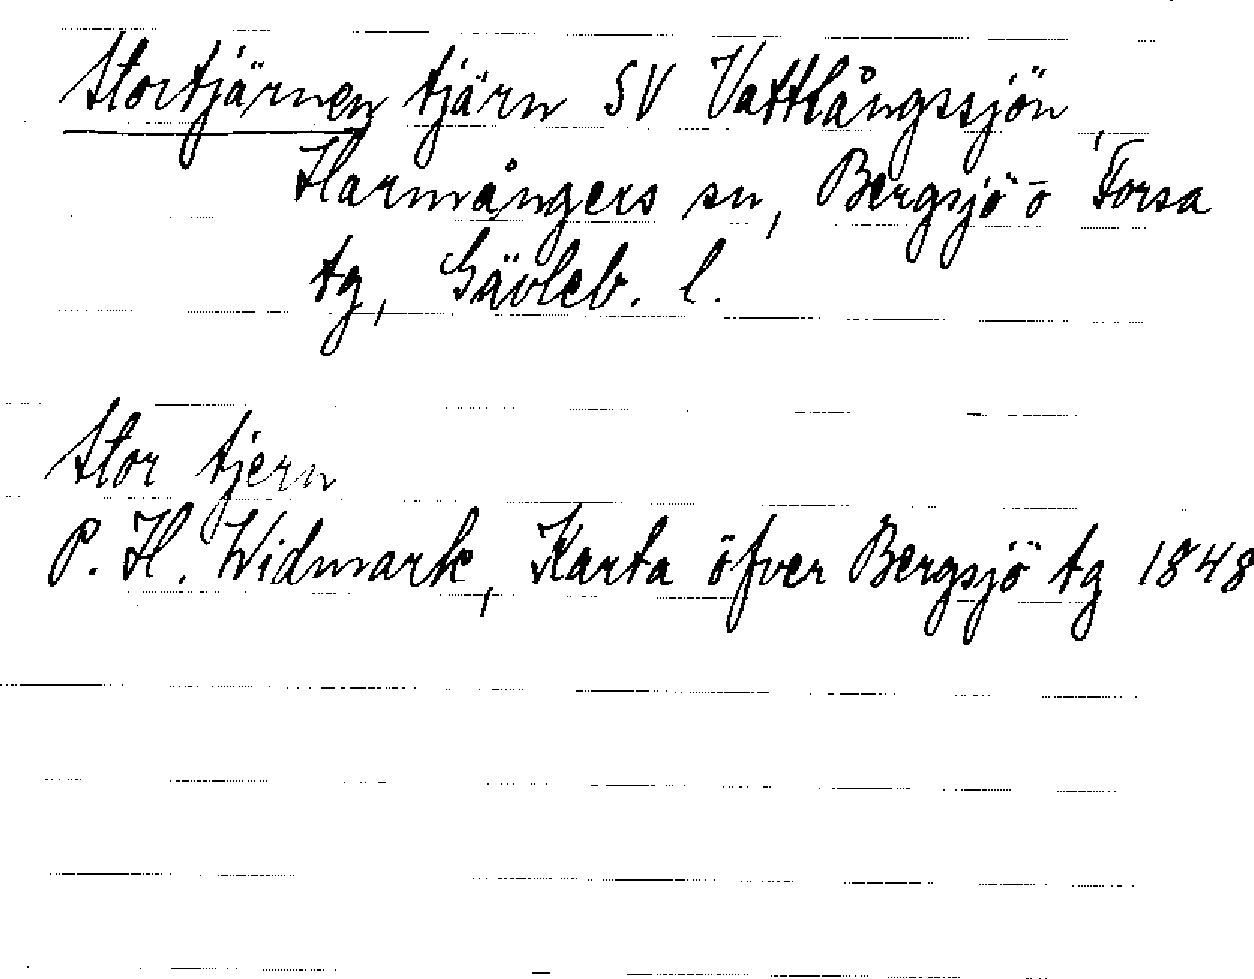 Stortjärnen tjärn SV Vattlångssjön,
Harmångers sn, Bergsjö o Forsa
tg, Gävleb. l.
Stor tjern
P. H. Widmark, Karta öfver Bergsjö tg 1848